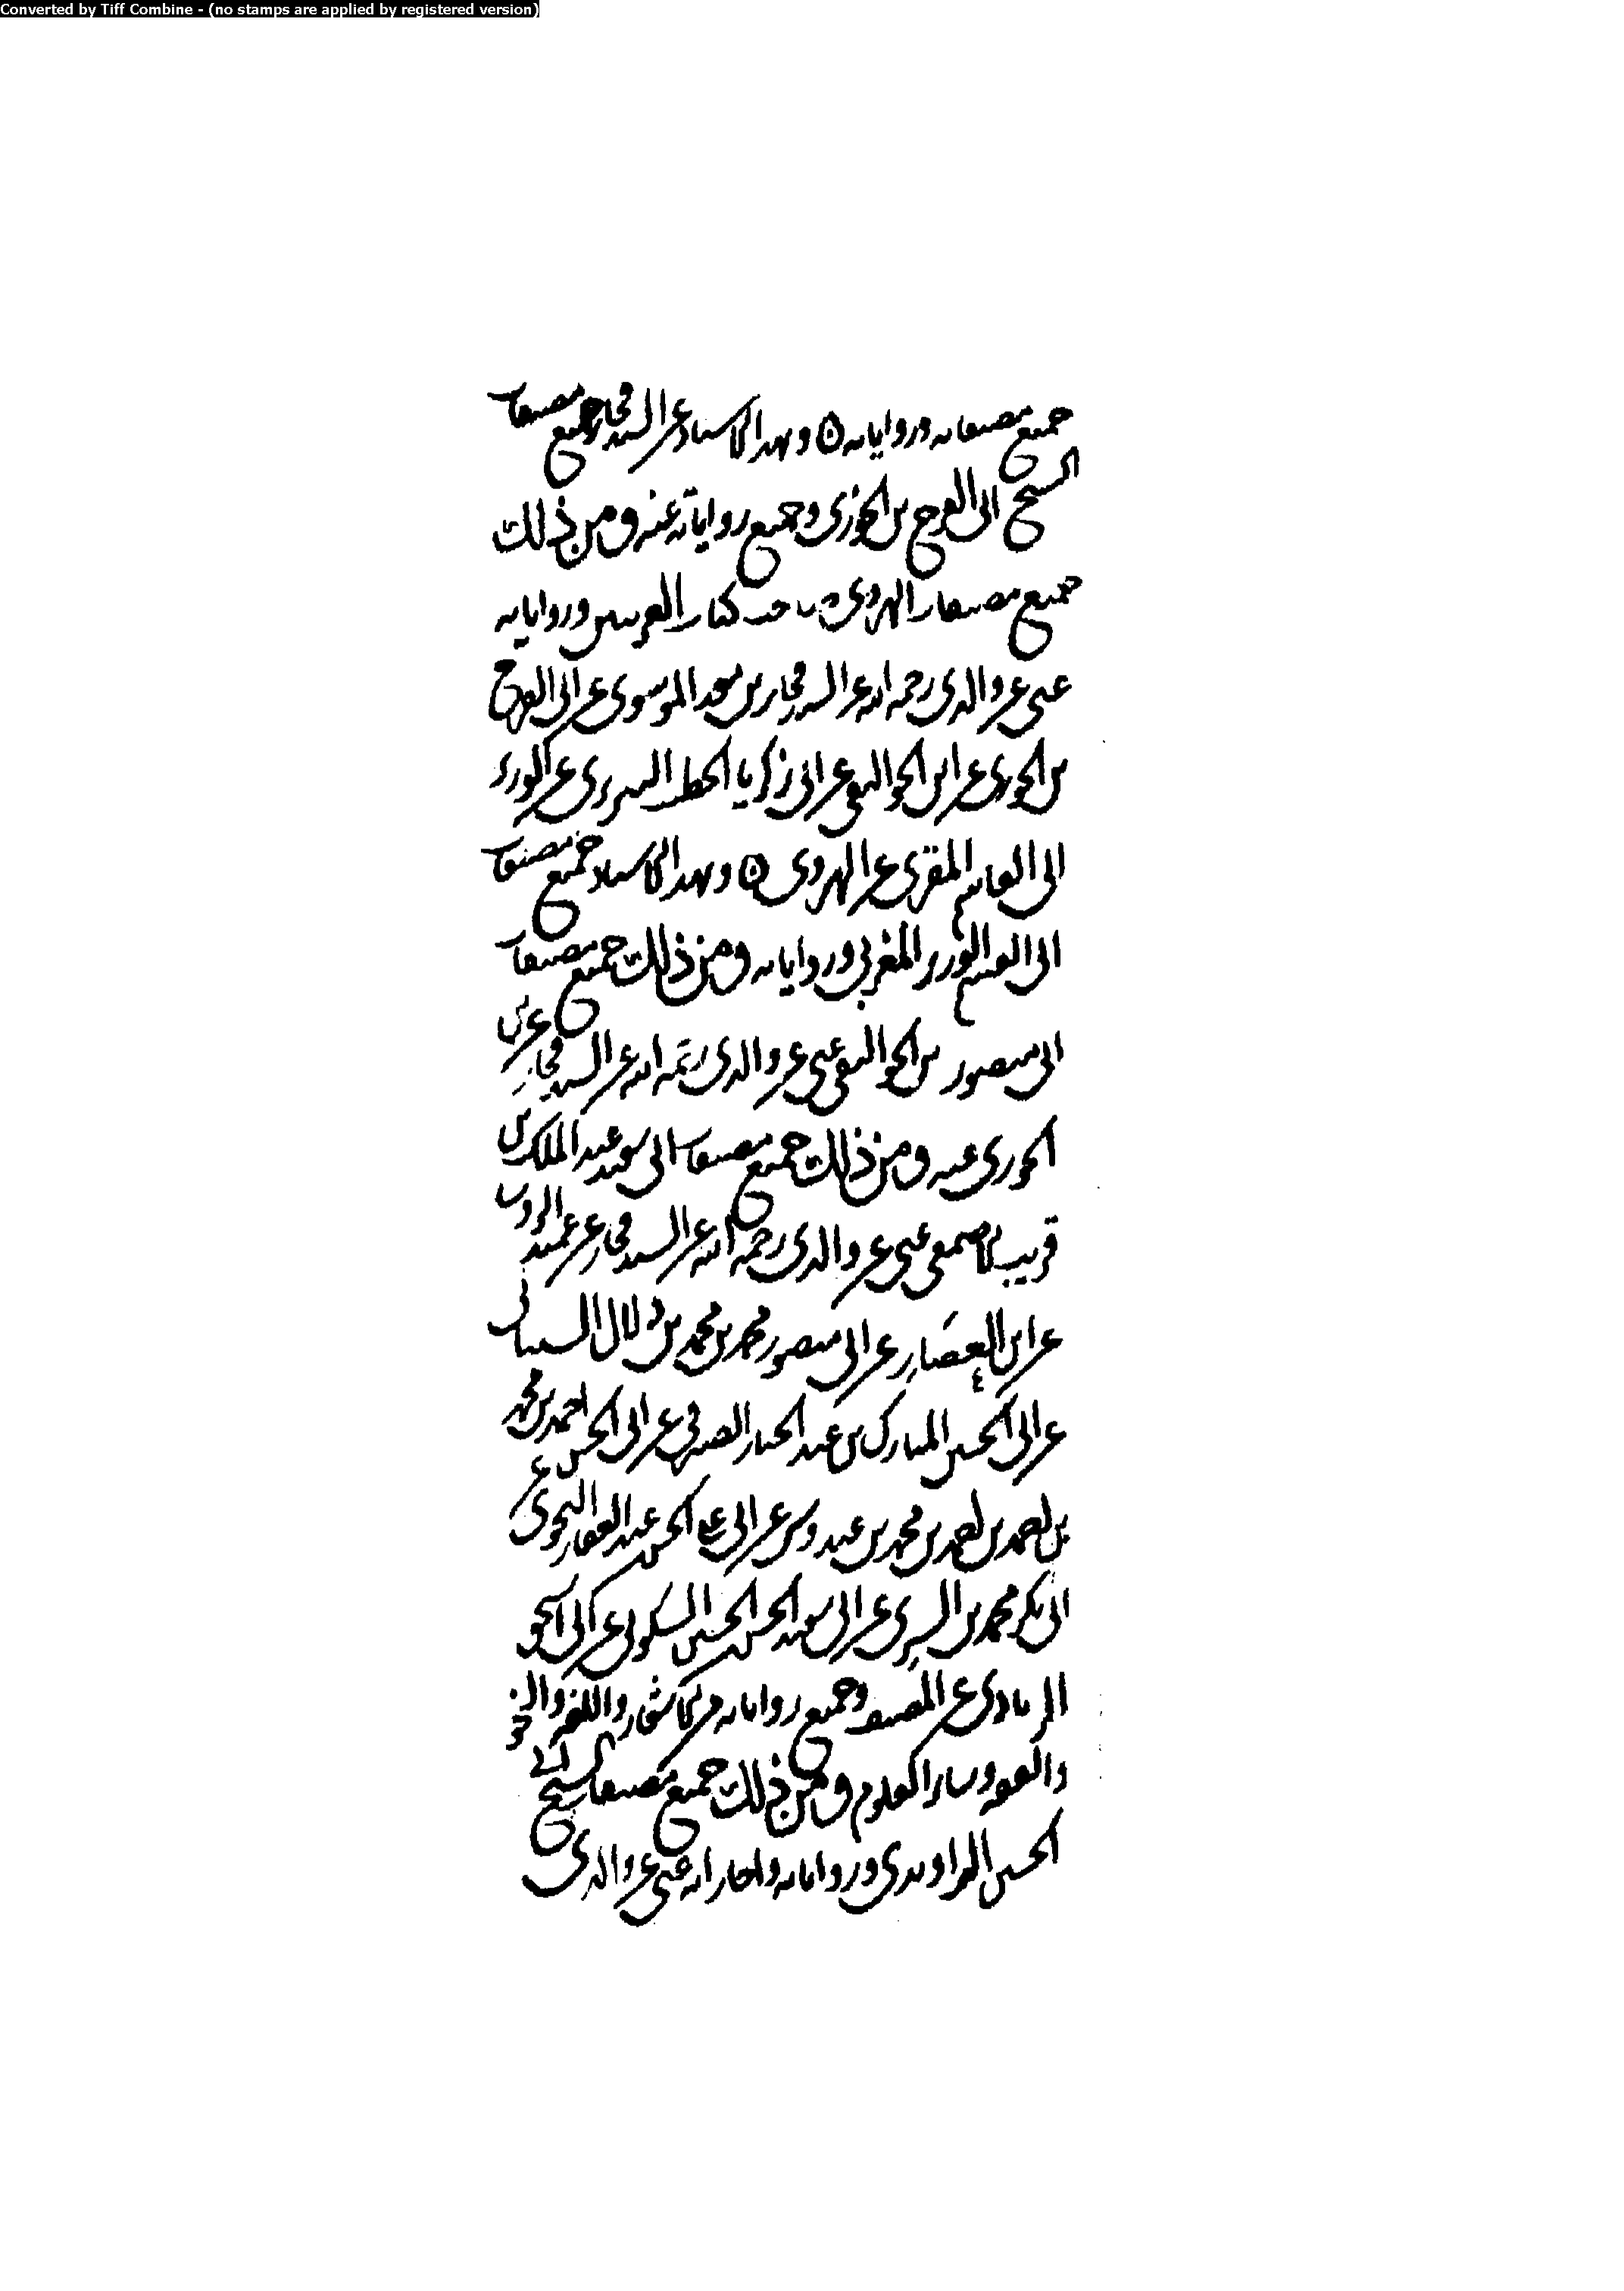 Converted by Tiff Combine - (no stamps are applied by registered version)
جميع مصنفاته ورواياته ۞ وبهذا الاسناد عن السيد فخار جميع مصنفات
الشيخ ابى الفرج بن الجوزى وجميع رواياته عنه ومن ذلك
جميع مصنفات الهروى صاحب كتاب الغريبين ورواياته
عنى عن والدى رحمه الله عن السيد فخار بن معد الموسوى عن ابى الفرج
بن الجوزى عن ابن الجواليقى عن ابى زكريا الخطيب التبريزى عن الوزير
ابى القاسم المقرى عن الهروى ۞ وبهذا الاسناد جميع مصنفات
ابى القسم الوزير المغربى ورواياته ومن ذلك جميع مصنفات
ابى منصور بن الجواليقى عنى عن والدى رحمه الله عن السيد فخار عن ابن
الجوزى عنه ومن ذلك جميع مصنفات ابى سعيد عبد الملك بن
قريب الاصمعى عنى عن والدى رحمه الله عن السيد فخار عن عميد الروسا
عن ابن العصار عن ابى منصور محمد بن محمد بن دلال الشيبانى
عن ابى الحسين المبارك بن عبد الجبار الصيرفى عن ابى الحسن احمد بن محمد
بن احمد بن احمد بن محمد بن عبدوس عن ابى على الحسن عبد الغفار النحوى عن
ابى بكر محمد بن السرى عن ابى سعيد الحسن الحسين السكرى عن ابى اسحق
الزيادى عن المصنف وجميع رواياته من الاشعار واللغة والنحو
والفقه وساير العلوم ومن ذلك جميع مصنفات الشيخ
الحسين الراوندى ورواياته واجازاته عنى عن والدى